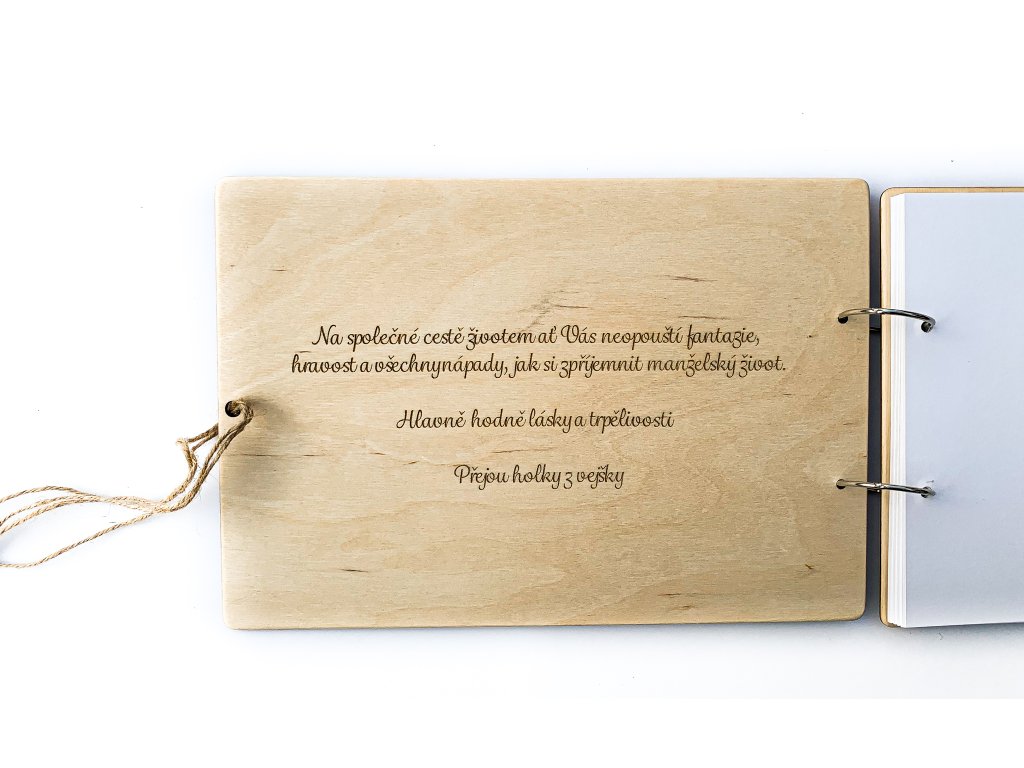 Na společné cestě životem ať Vás neopouští fantazie,
hravost a všechnynápady, jak si zpříjemnit manželský život.
Hlavně hodně lásky a trpělivosti
Přejou holky z vejšky